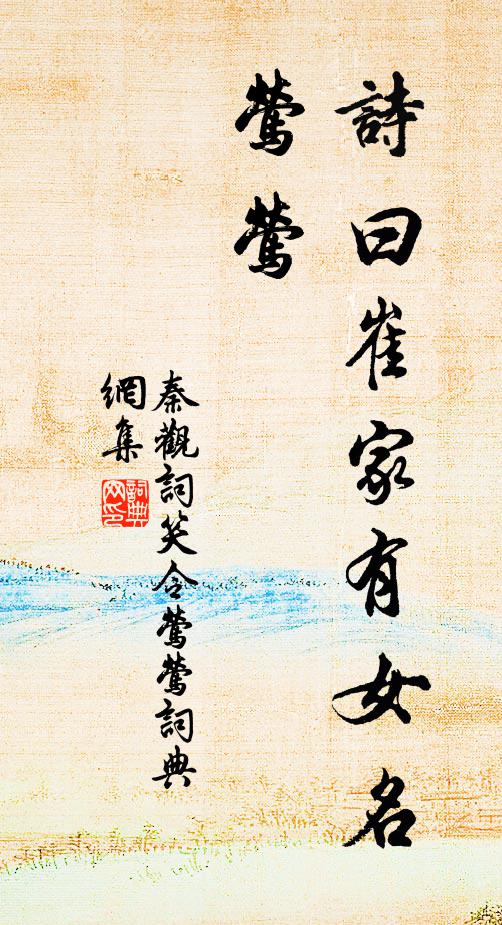 詩曰崔家有女名
鶯鶯
秦觀詞笑令鶯鶯詞典
網集
詞典
网印